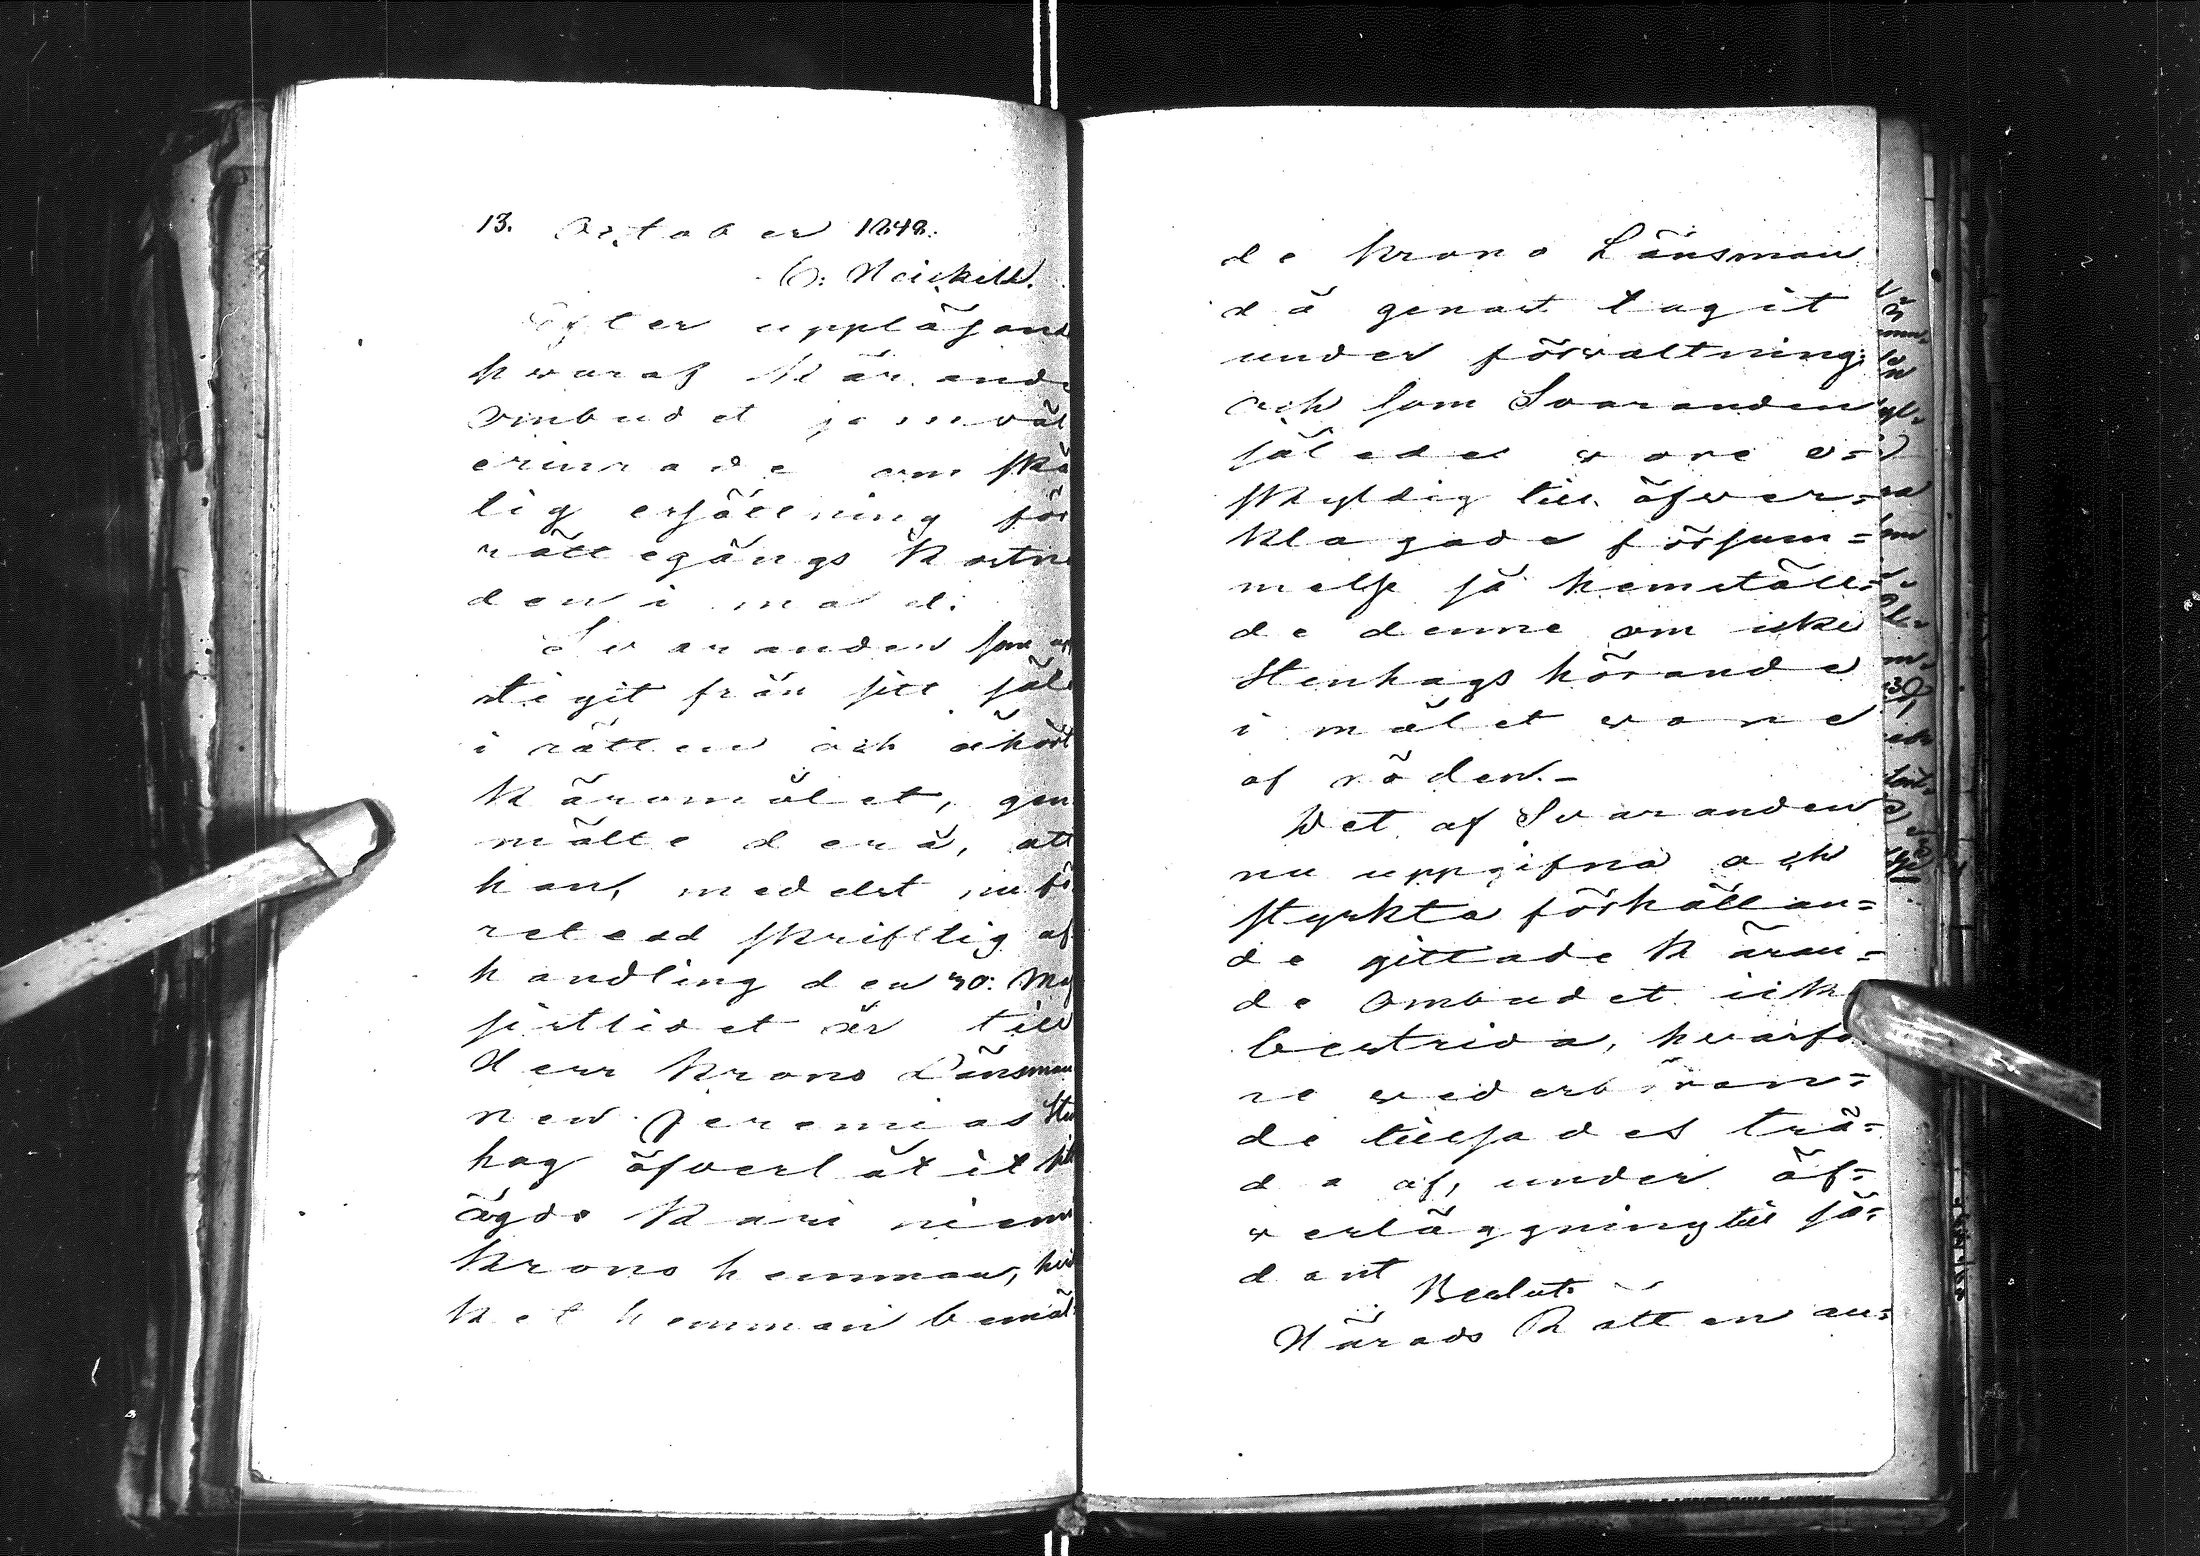 13. October 1848.
C: Heickell.
Efter uppläsand
hwaraf Kärande
ombudet jemväl
erinrade om skä
lig ersättning för
rättegångs kostna
den i mål.
Svaranden som af
stigit från sitt säte
i rätten och åhört
Käromålet, gen
mälte derå, att
han, medelst nu fö
retedd skriftlig af
handling den 30: Maj
sistlidet år till
Herr Krono Länsman
nen Jeremias Sten
hag öfverlåtit sitt
ägde Kariniemi
Krono hemman, hvil
ket hemman bemäl
de Krono Länsman
då genast tagit
under förvaltning,
och som Svaranden
således wore o=
skyldig till öfver=
klagade försum=
melse så hemställ=
de denne om icke
Stenhags hörande
i målet wore
af nöden.-
Det af Svaranden
nu uppgifna och
styrkta förhållan=
de gittade Käran=
de ombudet icke
bestrida, hvarfö
re wederböran=
de tillsades trä=
da af, under öf=
werläggning till så=
dant
Beslut:
Härads Rätten an=